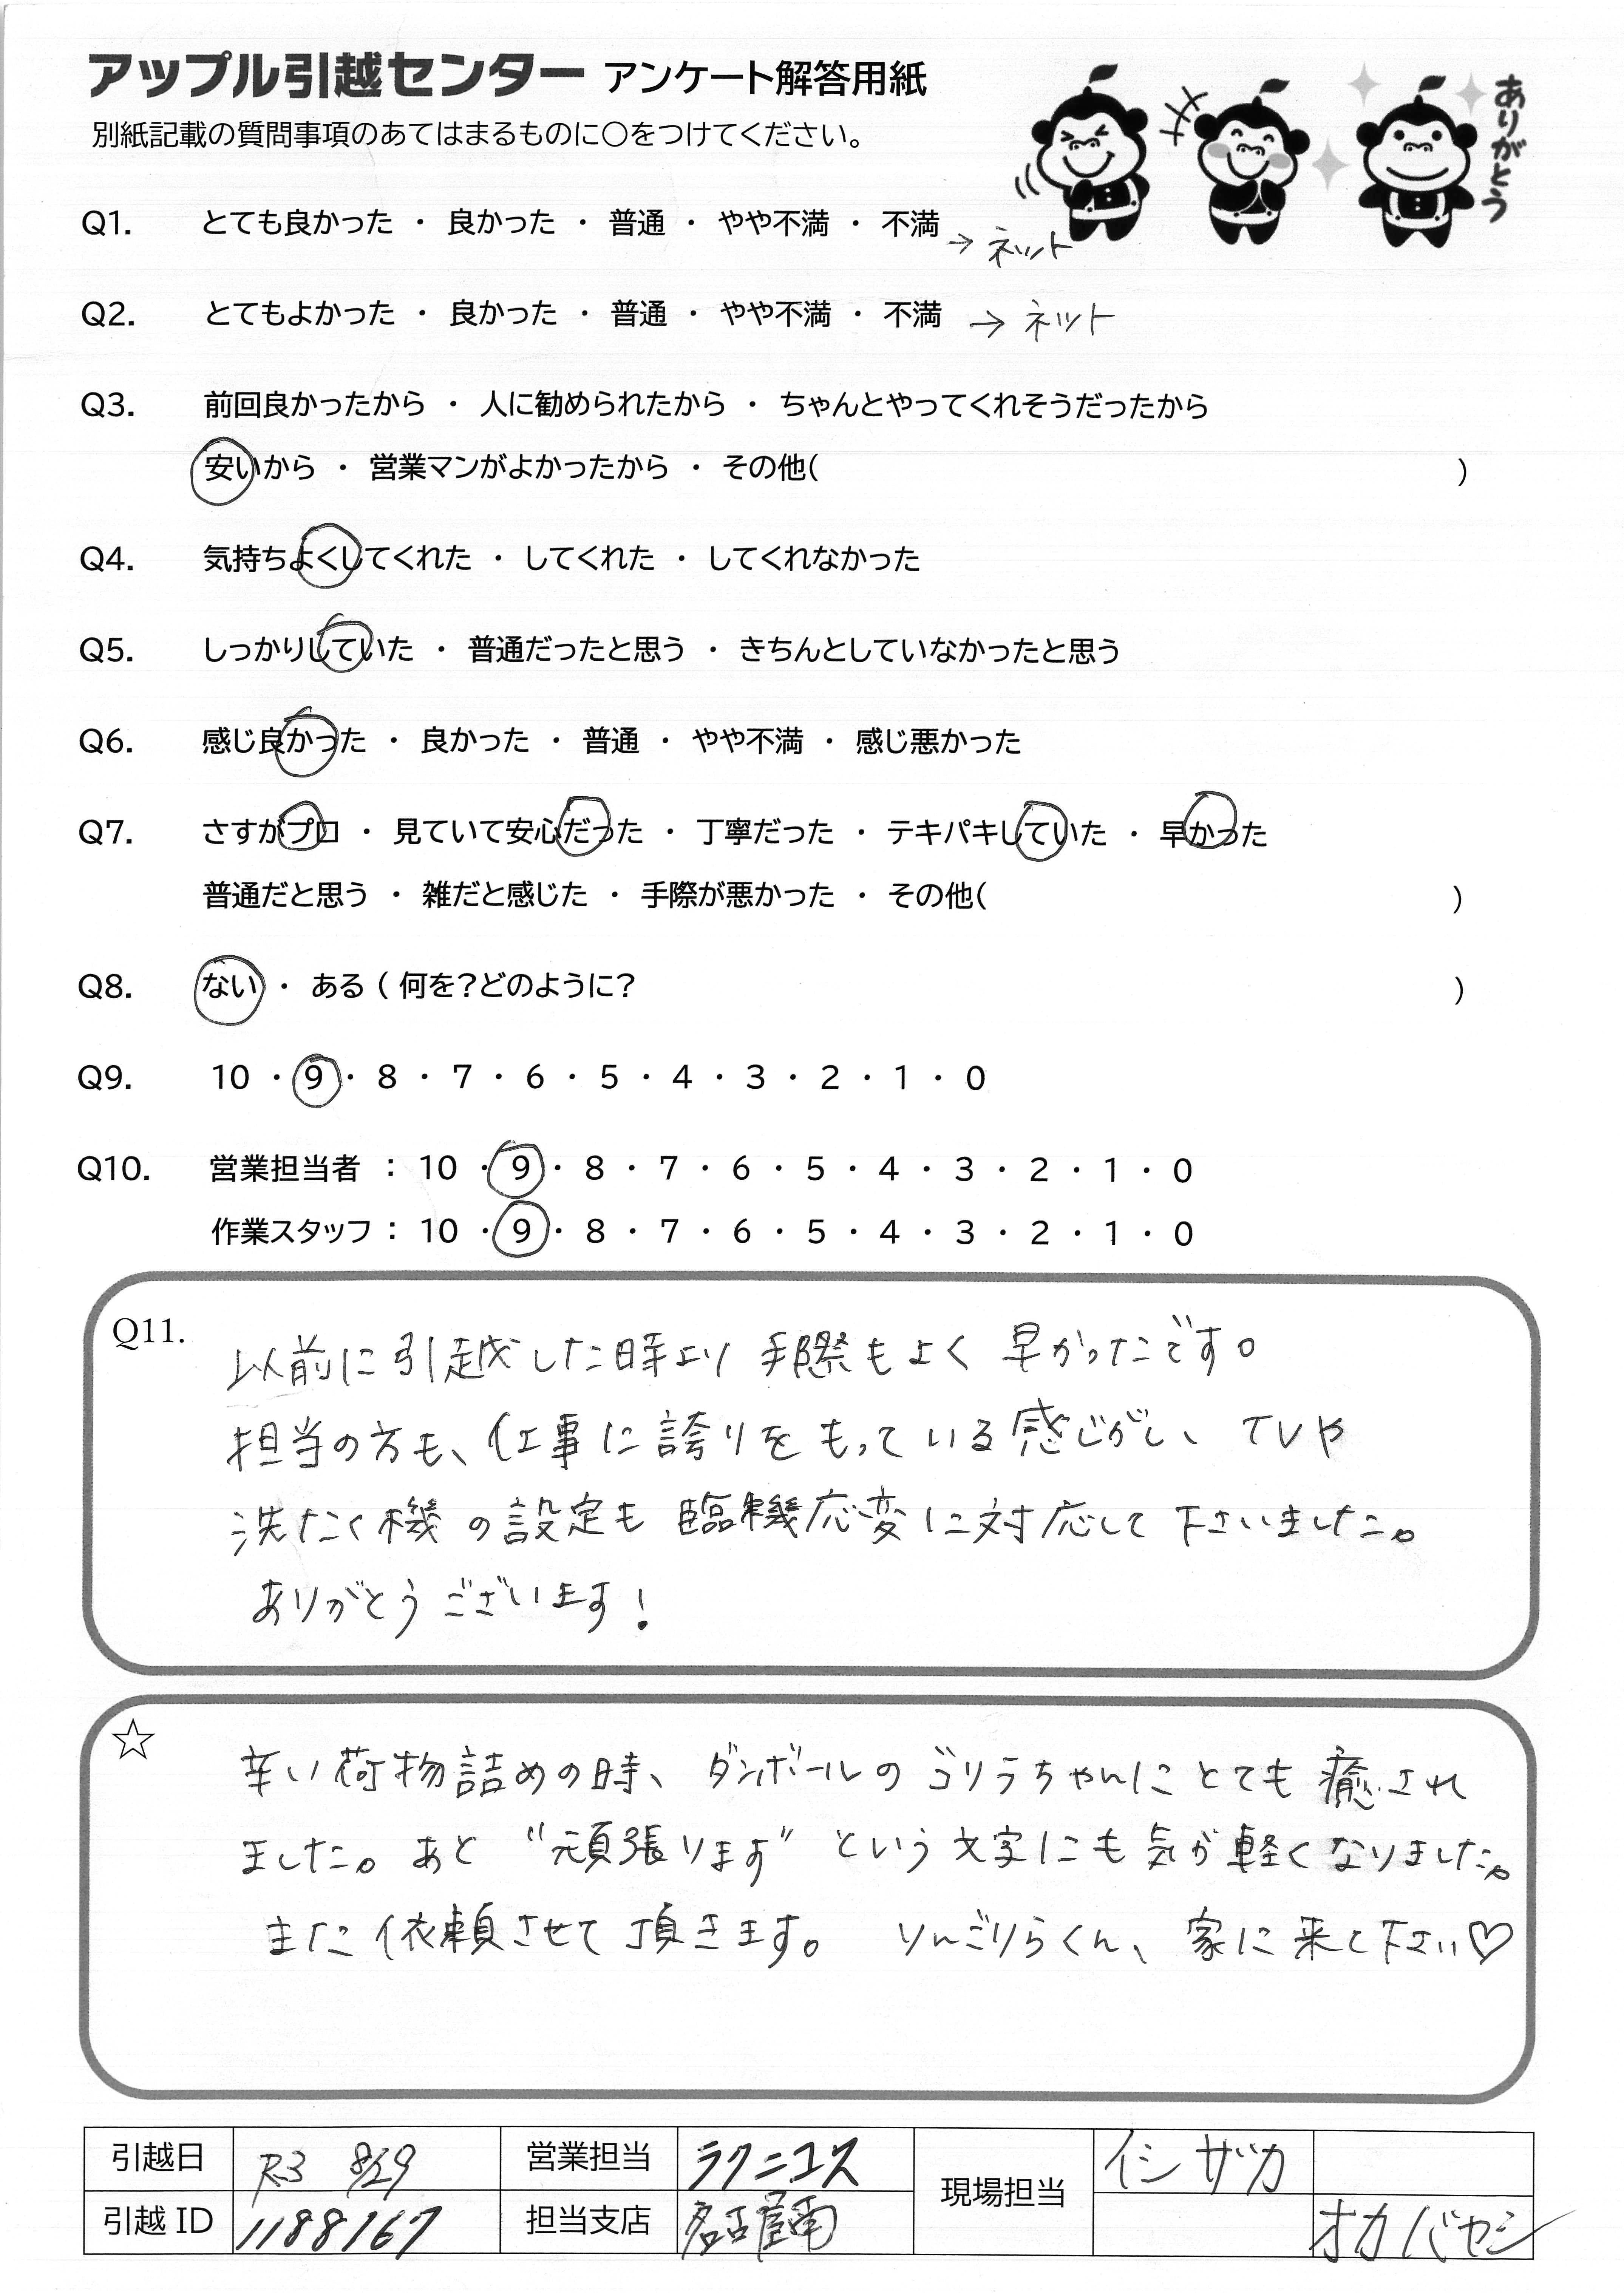 アップル引越センター アンケート解答用紙
ありがとう
別紙記載の質問事項のあてはまるものに〇をつけてください。
Q1. とても良かった ・ 良かった ・ 普通 ・ やや不満 ・ 不満 → ネット
Q2. とてもよかった ・ 良かった ・ 普通 ・ やや不満 ・ 不満 → ネット
Q3. 前回良かったから ・ 人に勧められたから ・ ちゃんとやってくれそうだったから
安いから ・ 営業マンがよかったから ・ その他( )
Q4. 気持ちよくしてくれた ・ してくれた ・ してくれなかった
Q5. しっかりしていた ・ 普通だったと思う ・ きちんとしていなかったと思う
Q6. 感じ良かった ・ 良かった ・ 普通 ・ やや不満 ・ 感じ悪かった
Q7. さすがプロ ・ 見ていて安心だった ・ 丁寧だった ・ テキパキしていた ・ 早かった
普通だと思う ・ 雑だと感じた ・ 手際が悪かった ・ その他( )
Q8. ない ・ ある ( 何を?どのように? )
Q9. 10 ・ 9 ・ 8 ・ 7 ・ 6 ・ 5 ・ 4 ・ 3 ・ 2 ・ 1 ・ 0
Q10. 営業担当者 : 10 ・ 9 ・ 8 ・ 7 ・ 6 ・ 5 ・ 4 ・ 3 ・ 2 ・ 1 ・ 0
作業スタッフ : 10 ・ 9 ・ 8 ・ 7 ・ 6 ・ 5 ・ 4 ・ 3 ・ 2 ・ 1 ・ 0
Q11. 以前に引越した時より 手際もよく 早かったです。
担当の方も、仕事に誇りをもっている感じがし、TVや
洗たく機の設定も 臨機応変に対応して下さいました。
ありがとうございます!
☆ 辛い荷物詰めの時、ダンボールのゴリラちゃんにとても癒され
ました。あと "頑張ります" という文字にも気が軽くなりました。
また依頼させて頂きます。 りんごりらくん、家に来て下さい♡
引越日 R3 8/29 営業担当 ラクニコス 現場担当 イシザカ
引越ID 1188167 担当支店 名古屋南 オカバヤシ